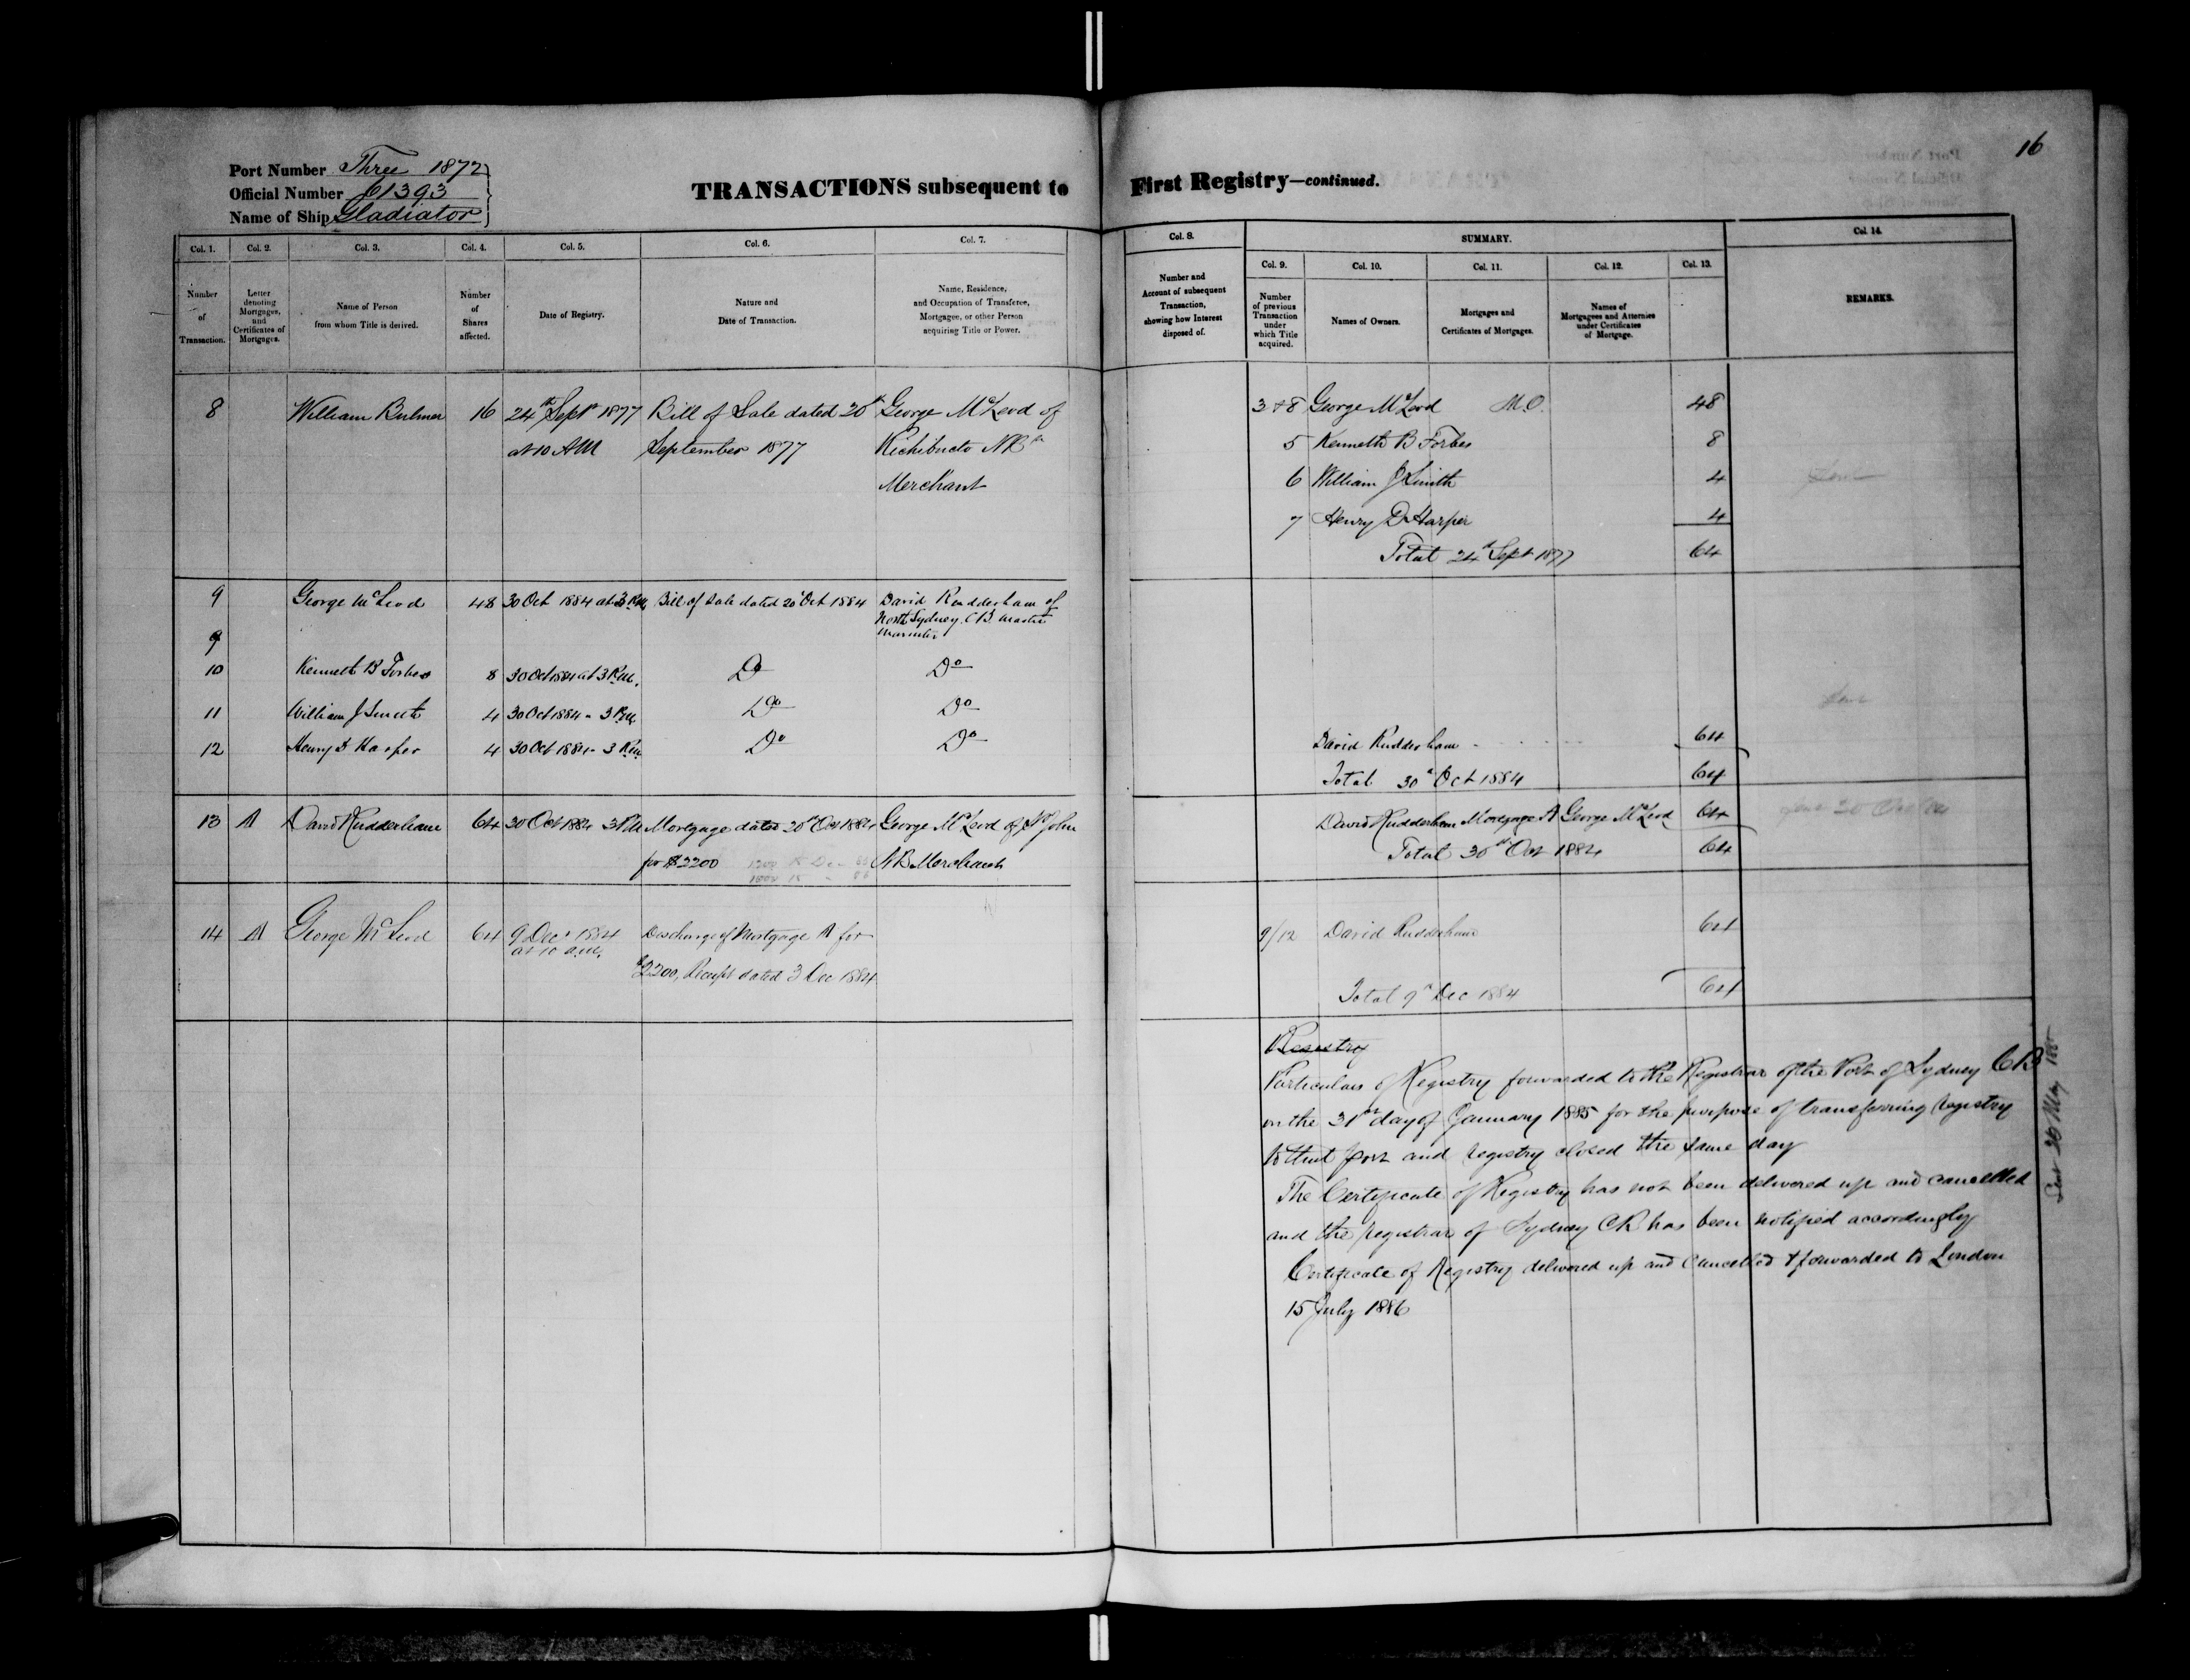 16
Port Number Three 1872
Official Number 61393
Name of Ship Gladiator
TRANSACTIONS subsequent to First Registry—continued.
Col. 1. Col. 2. Col. 3. Col. 4. Col. 5. Col. 6. Col. 7. Col. 8. SUMMARY. Col. 14.
Col. 9. Col. 10. Col. 11. Col. 12. Col. 13.
Number of Transaction.
Letter denoting Mortgages, and Certificates of Mortgages.
Name of Person from whom Title is derived.
Number of Shares affected.
Date of Registry.
Nature and Date of Transaction.
Name, Residence, and Occupation of Transferee, Mortgagee, or other Person acquiring Title or Power.
Number and Account of subsequent Transaction, showing how Interest disposed of.
Number of previous Transaction under which Title acquired.
Names of Owners.
Mortgages and Certificates of Mortgages.
Names of Mortgagees and Attornies under Certificates of Mortgage.
REMARKS.
8 William Bulmer 16 24th Sept 1877 Bill of Sale dated 20th George McLeod of
at 10 AM September 1877 Richibucto NB
Merchant
3 & 8 George McLeod M.O. 48
5 Kenneth B Forbes 8
6 William J Smith 4
7 Henry D Harper 4
Total 24th Sept 1877 64
9 George McLeod 48 30 Oct 1884 at 3 P.M. Bill of Sale dated 20 Oct 1884 David Rudderham of
North Sydney C.B. Master
Mariner
9
10 Kenneth B Forbes 8 30 Oct 1884 at 3 P.M. Do Do
11 William J Smith 4 30 Oct 1884 - 3 P.M. Do Do
12 Henry D Harper 4 30 Oct 1884 - 3 P.M. Do Do
David Rudderham 64
Total 30th Oct 1884 64
13 A David Rudderham 64 30 Oct 1884 3 PM Mortgage dated 20th Oct 1884 George McLeod of St John
for $2200 NB Merchant
David Rudderham Mortgage A George McLeod 64
Total 30th Oct 1884 64
14 A George McLeod 64 9 Dec 1884 Discharge of Mortgage A for
at 10 a.m. $2200, Receipt dated 3 Dec 1884
9/12 David Rudderham 64
Total 9th Dec 1884 64
Registry
Particulars of Registry forwarded to the Registrar of the Port of Sydney CB
on the 31st day of January 1885 for the purpose of transferring registry
to that port and registry closed the same day
The Certificate of Registry has not been delivered up and cancelled
and the registrar of Sydney CB has been notified accordingly
Certificate of Registry delivered up and Cancelled & forwarded to London
15 July 1886